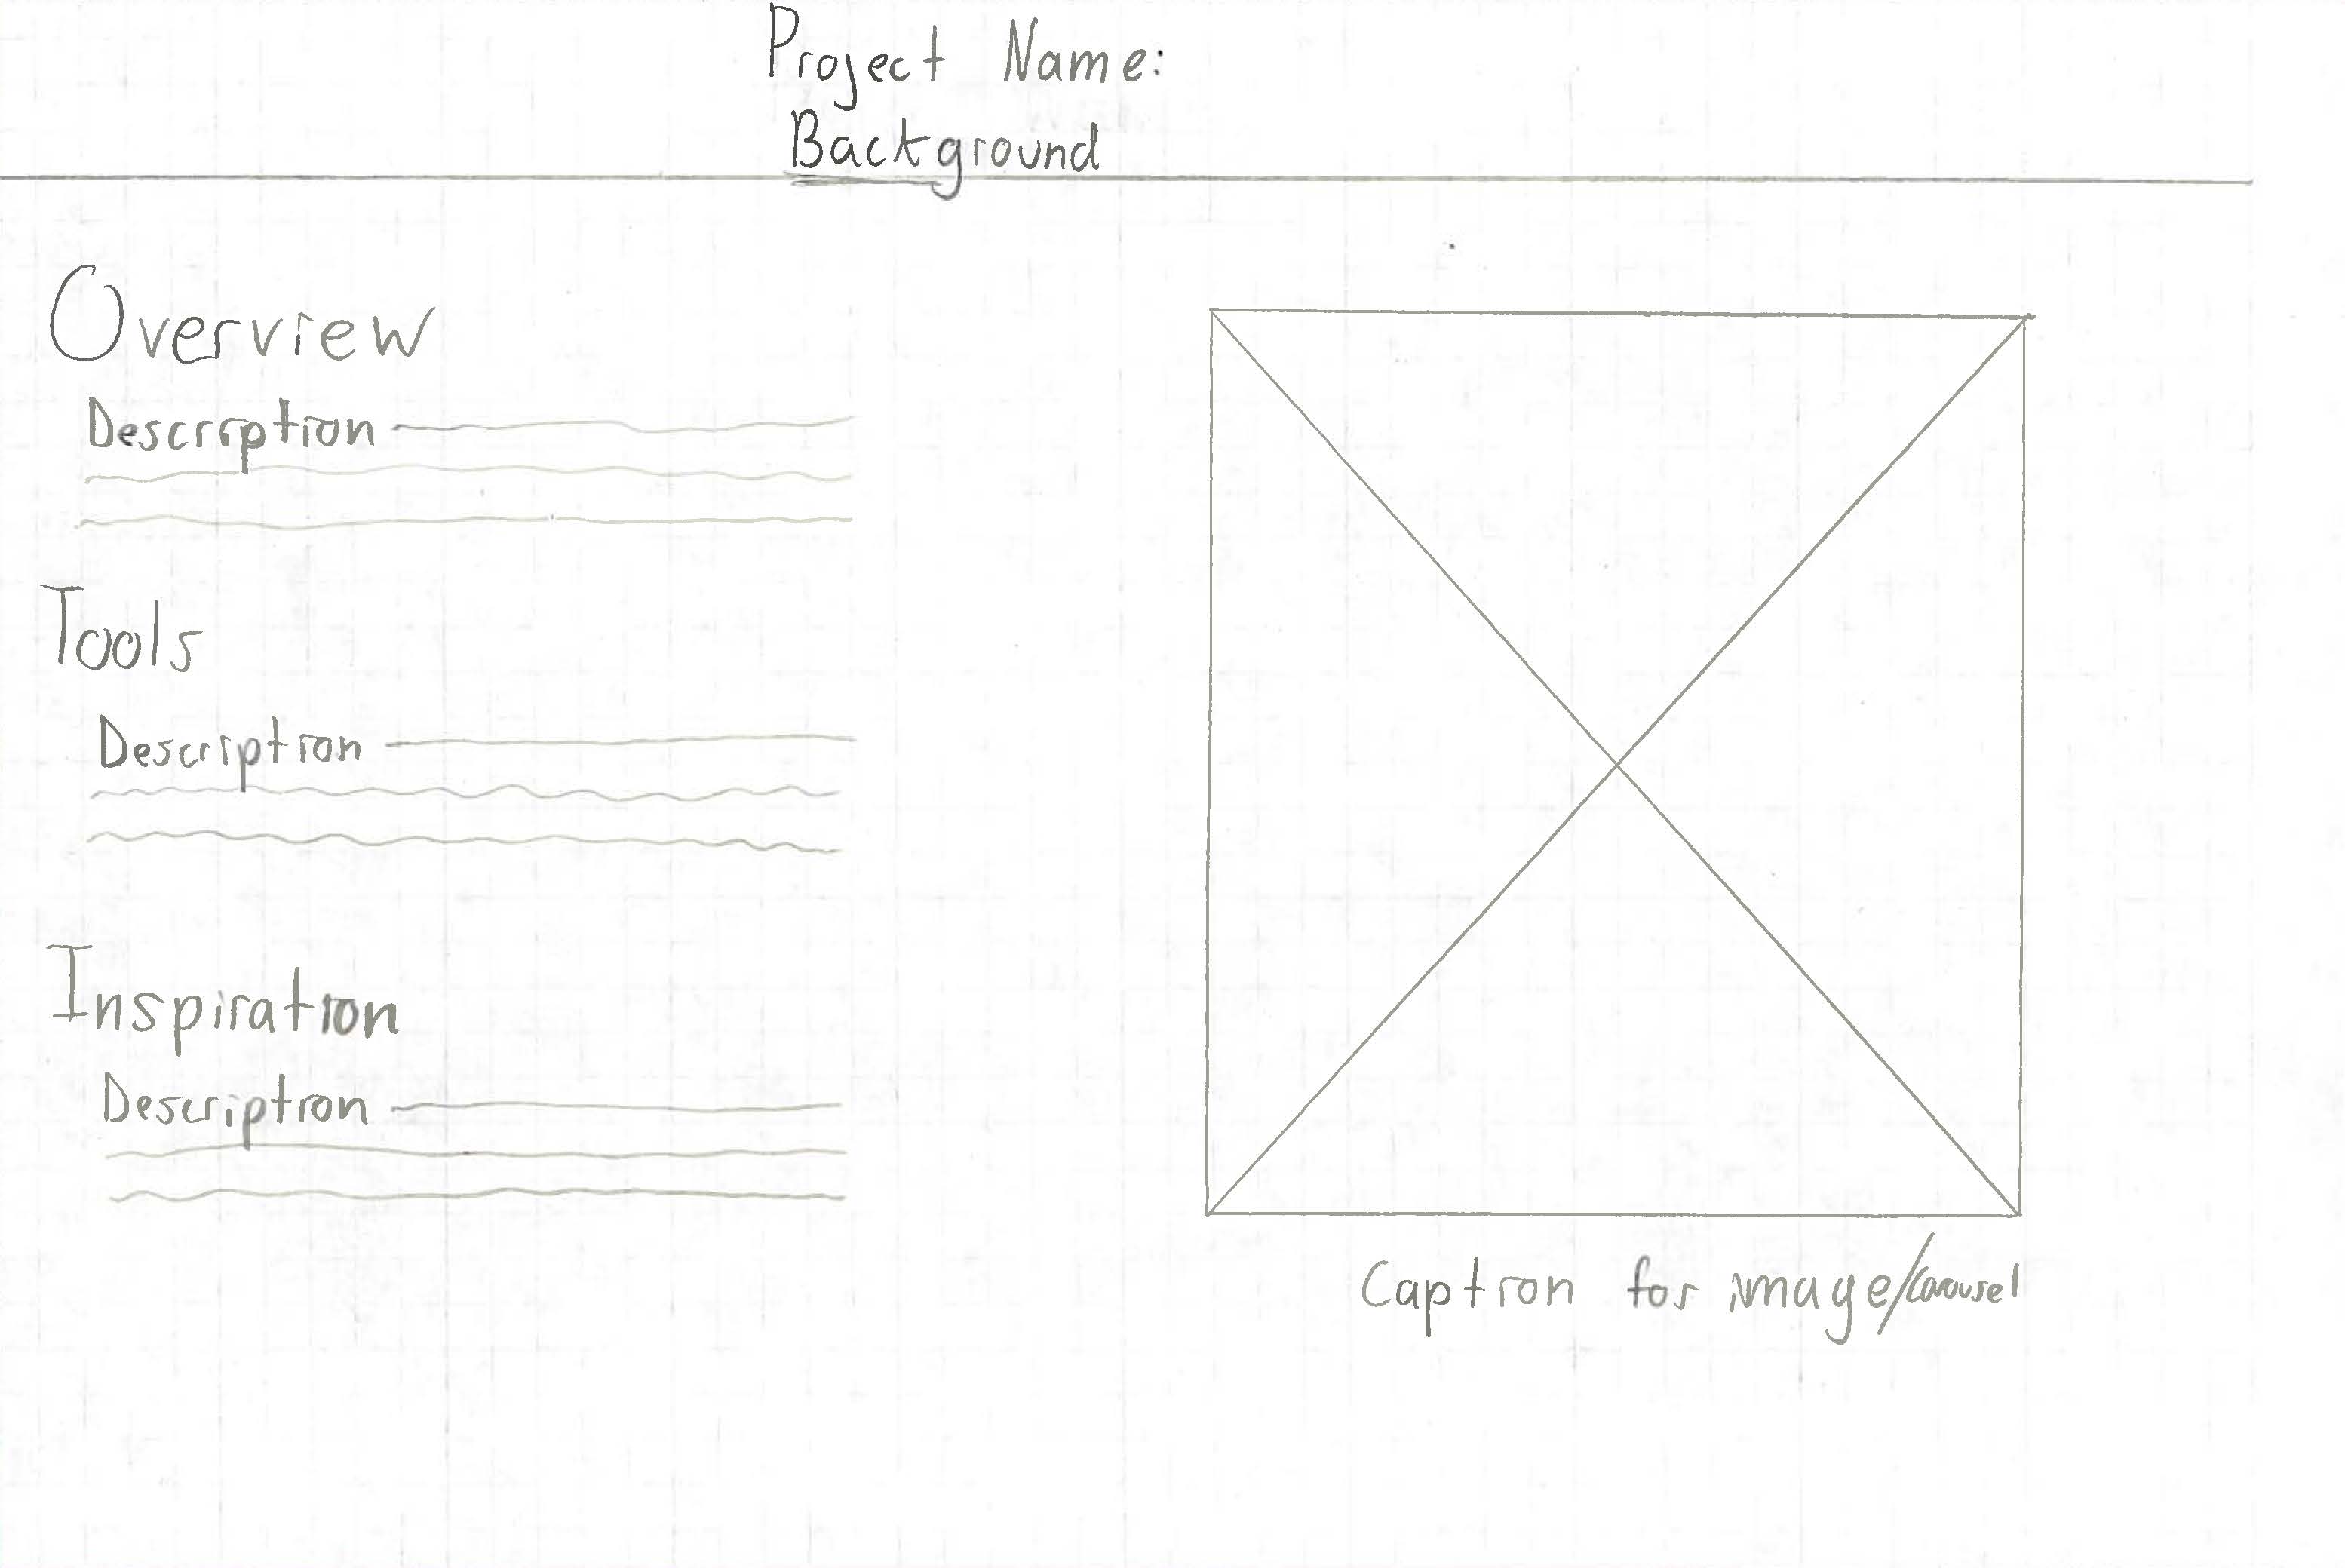 Project Name:
Background
Overview
Description
Tools
Description
Inspiration
Description
Caption for image/carousel